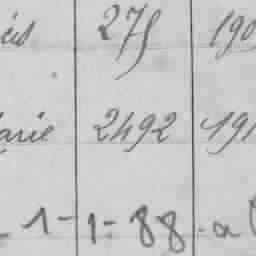 275 190
arie 2492 191
1-1-88-a